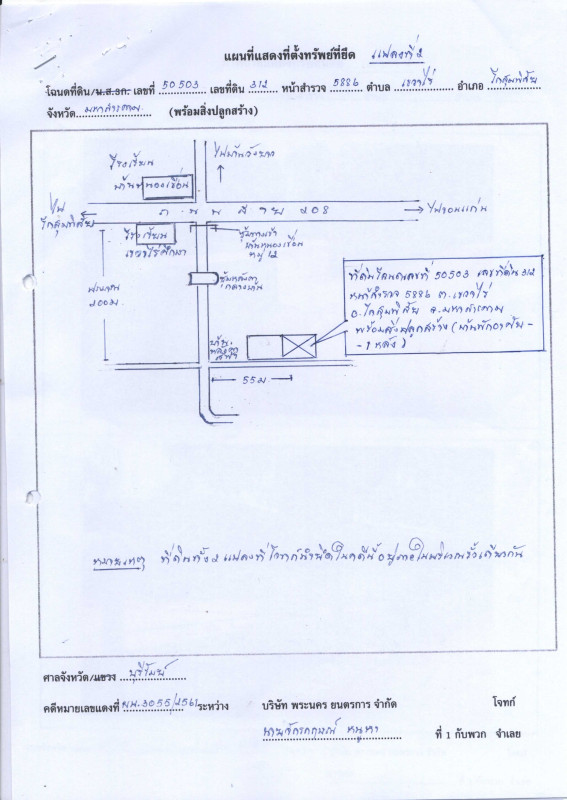 แผนที่แสดงที่ตั้งทรัพย์ที่ยึด แปลงที่ 2
โฉนดที่ดิน/น.ส.๓ก. เลขที่ 50503 เลขที่ดิน 312 หน้าสำรวจ 5886 ตำบล เขวาไร่ อำเภอ โกสุมพิสัย
จังหวัด มหาสารคาม (พร้อมสิ่งปลูกสร้าง)
โรงเรียน
บ้านหนองเขื่อน
ไป
โกสุมพิสัย
ถนนสาย 208
ไปขอนแก่น
โรงเรียน
เขวาไร่ศึกษา
ซุ้มทางเข้า
บ้านหนองเขื่อน
หมู่ 12
ประมาณ
200 ม.
ที่ดินโฉนดเลขที่ 50503 เลขที่ดิน 312
หน้าสำรวจ 5886 ต.เขวาไร่
อ.โกสุมพิสัย จ.มหาสารคาม
พร้อมสิ่งปลูกสร้าง (บ้านพักอาศัย -
- 1 หลัง)
55 ม.
หมายเหตุ ที่ดินทั้ง 2 แปลงที่โจทก์นำยึดในคดีนี้อยู่ภายในบริเวณรั้วเดียวกัน
ศาลจังหวัด/แขวง บุรีรัมย์
คดีหมายเลขแดงที่ ผบ.3055/2561 ระหว่าง บริษัท พระนคร ยนตรการ จำกัด โจทก์
นายจักรกฤษณ์ ที่ 1 กับพวก จำเลย